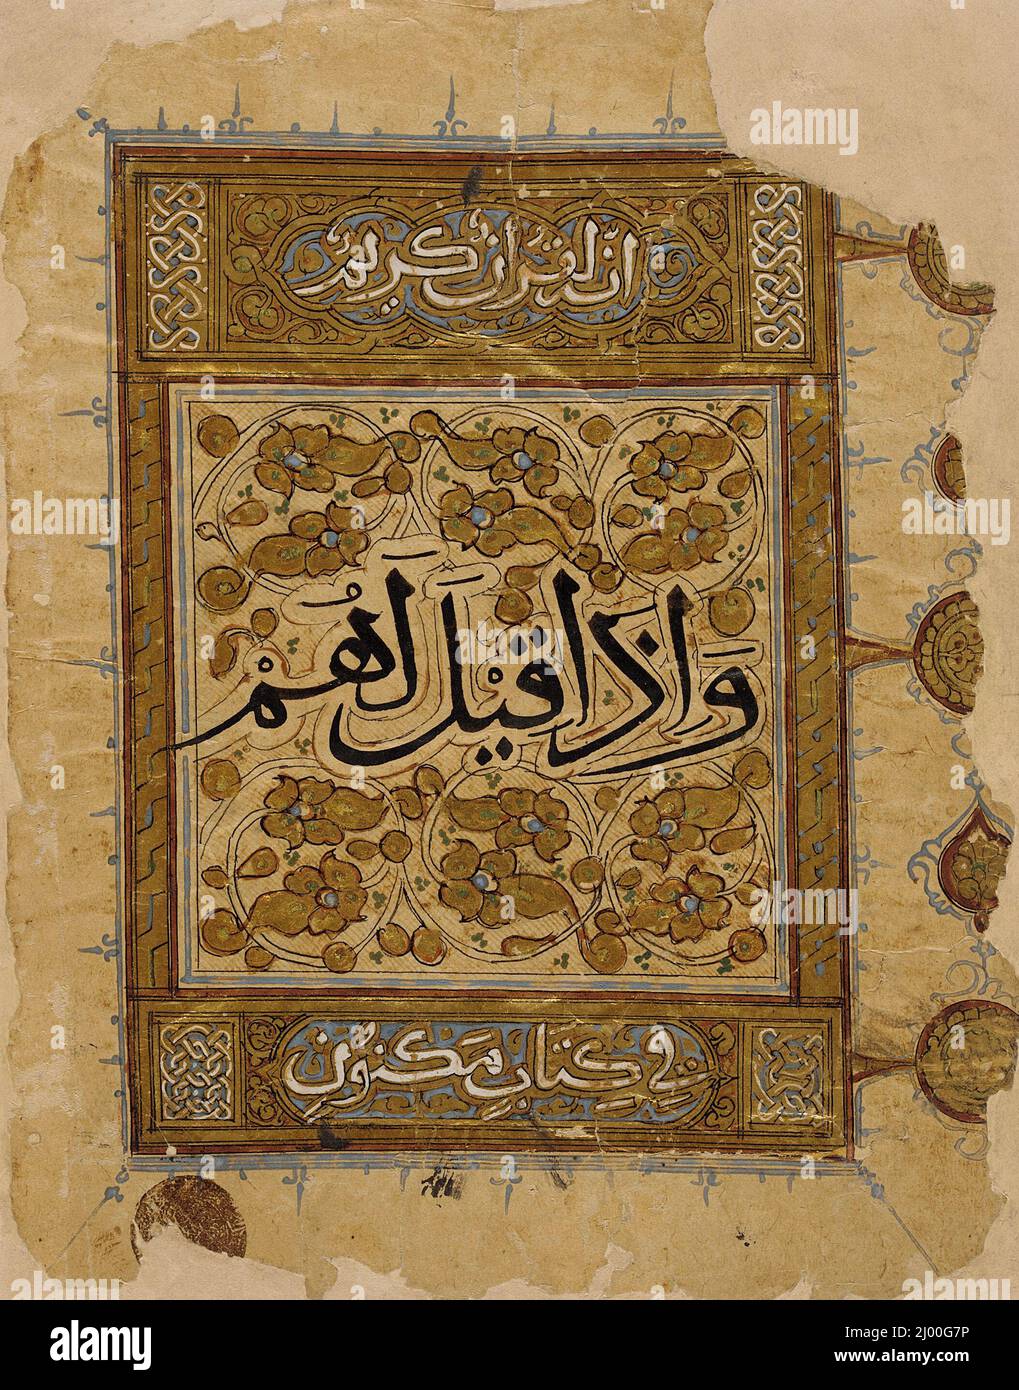 انَّ القرانٌ كريمٌ
وَاِذَا قِيْلَ لَهُمْ
فِي كِتَابٍ مَكنُونٍ
alamy
Image ID: 2J00G7P
www.alamy.com